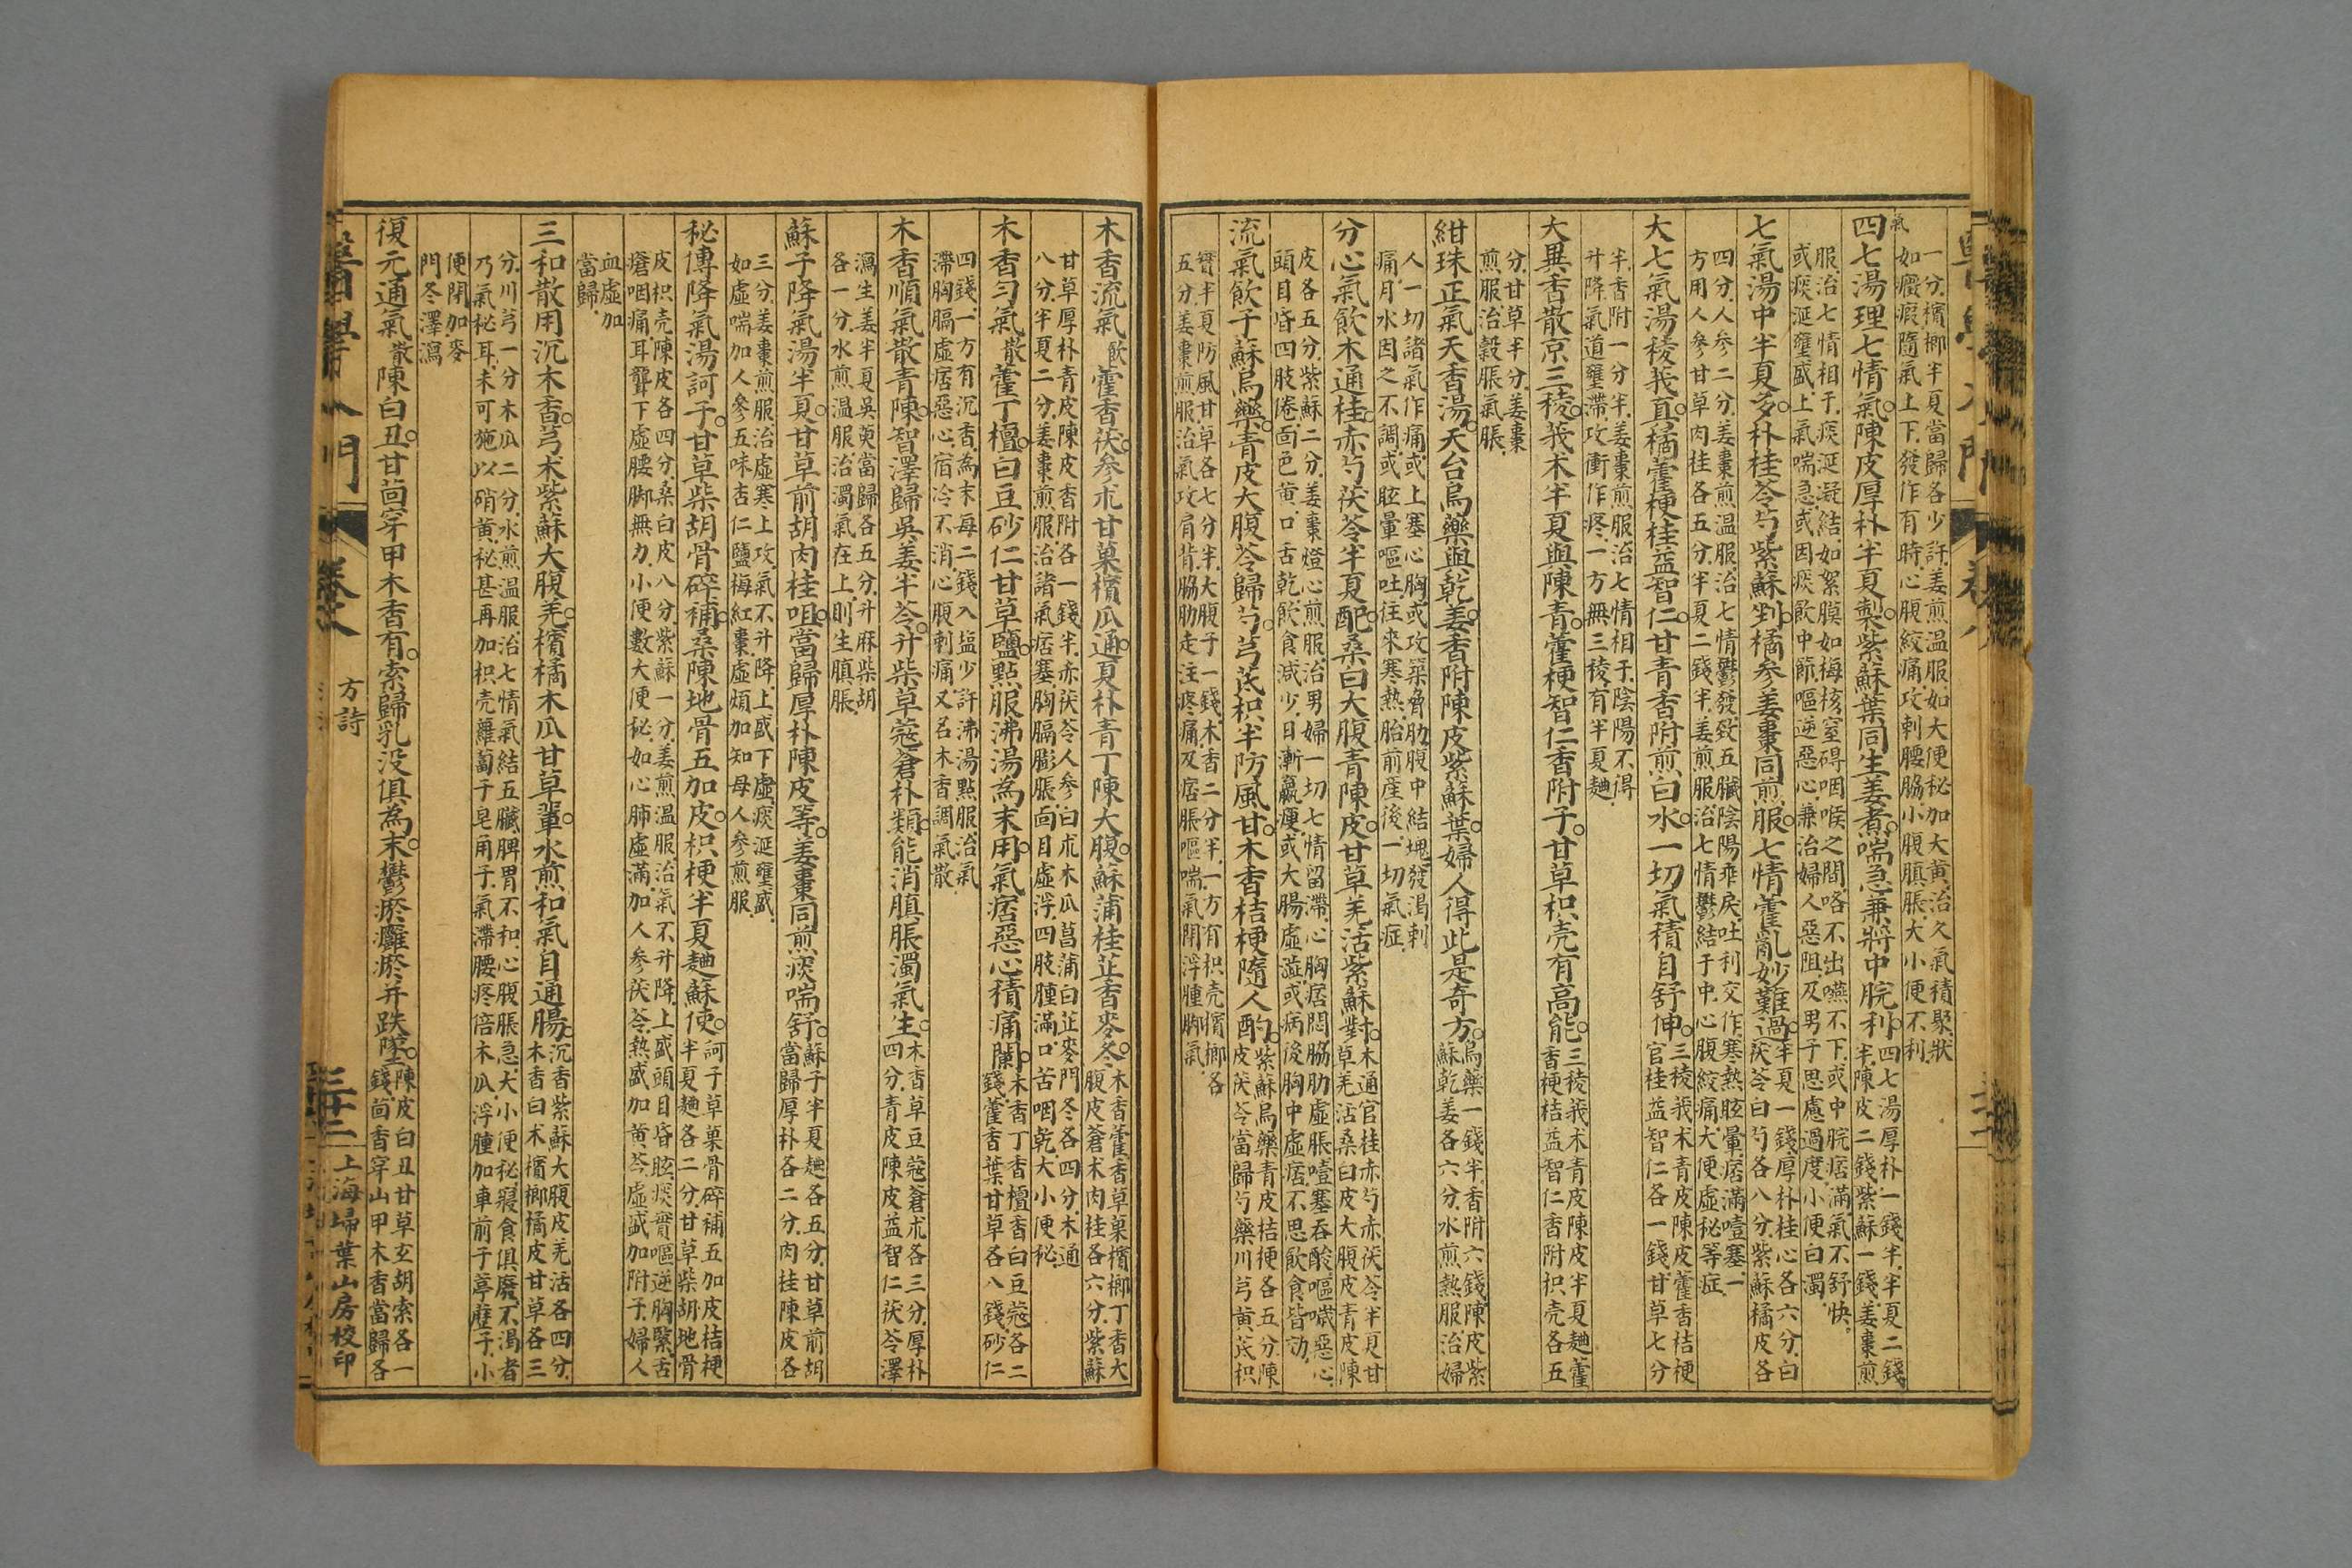 一分檳榔半夏當歸各少許姜煎溫服如大便秘加大黃治久氣積聚狀
如癥瘕隨氣上下發作有時心腹絞痛攻刺腰脇小腹䐜脹大小便不利
氣
四七湯理七情氣陳皮厚朴半夏製紫蘇葉同生姜煮喘急兼將中脘利
四七湯厚朴一錢半半夏二錢
半陳皮二錢紫蘇一錢姜棗煎
服治七情相干痰涎凝結如絮膜如梅核窒碍咽喉之間咯不出嚥不下或中脘痞滿氣不舒快
或痰涎壅盛上氣喘急或因痰飲中節嘔逆惡心兼治婦人惡阻及男子思慮過度小便白濁
七氣湯中半夏多朴桂苓芍紫蘇到橘參姜棗同煎服七情霍亂妙難過
半夏一錢厚朴桂心各六分白
茯苓白芍各八分紫蘇橘皮各
四分人參二分姜棗煎溫服治七情鬱發致五臟陰陽乖戾吐利交作寒熱眩暈痞滿噎塞一
方用人參甘草肉桂各五分半夏二錢半姜煎服治七情鬱結于中心腹絞痛大便虛秘等症
大七氣湯稜莪直橘藿梗桂益智仁甘青香附煎白水一切氣積自舒伸
三稜莪术青皮陳皮藿香桔梗
官桂益智仁各一錢甘草七分
半香附一分半姜棗煎服治七情相干陰陽不得
升降氣道壅滯攻衝作疼一方無三稜有半夏麯
大異香散京三稜莪术半夏與陳青藿梗智仁香附子甘草枳壳有高能
三稜莪术青皮陳皮半夏麯藿
香梗桔益智仁香附枳壳各五
分甘草半分姜棗
煎服治穀脹氣脹
紺珠正氣天香湯天台烏藥與乾姜香附陳皮紫蘇葉婦人得此是奇方
烏藥一錢半香附六錢陳皮紫
蘇乾姜各六分水煎熱服治婦
人一切諸氣作痛或上塞心胸或攻築脅肋腹中結塊發渴刺
痛月水因之不調或眩暈嘔吐往來寒熱胎前産後一切氣症
分心氣飲木通桂赤芍茯苓半夏配桑白大腹青陳皮甘草羌活紫蘇對
木通官桂赤芍赤茯苓半夏甘
草羌活桑白皮大腹皮青皮陳
皮各五分紫蘇二分姜棗燈心煎服治男婦一切七情留滯心胸痞悶脇肋虛脹噎塞吞酸嘔噦惡心
頭目昏四肢倦面色黄口舌乾飲食减少日漸羸瘦或大腸虛澁或病後胸中虛痞不思飲食皆効
流氣飲子蘇烏藥青皮大腹苓歸芍芎芪枳半防風甘木香桔梗隨人酌
紫蘇烏藥青皮桔梗各五分陳
皮茯苓當歸芍藥川芎黄芪枳
實半夏防風甘草各七分半大腹子一錢木香二分半一方有枳壳檳榔各
五分姜棗煎服治氣攻肩背脇肋走注疼痛及痞脹嘔喘氣閉浮腫脚氣
木香流氣飲藿香茯參朮甘菓檳瓜通夏朴青丁陳大腹蘇蒲桂芷香麥冬
木香藿香草菓檳榔丁香大
腹皮蒼朮肉桂各六分紫蘇
甘草厚朴青皮陳皮香附各一錢半赤茯苓人參白朮木瓜菖蒲白芷麥門冬各四分木通
八分半夏二分姜棗煎服治諸氣痞塞胸膈膨脹面目虛浮四肢腫滿口苦咽乾大小便秘
木香勻氣散藿丁檀白豆砂仁甘草鹽點服沸湯為末用氣痞惡心積痛闌
木香丁香檀香白豆蔻各二
錢藿香葉甘草各八錢砂仁
四錢一方有沉香為末每二錢入塩少許沸湯點服治氣
滯胸膈虛痞惡心宿冷不消心腹刺痛又名木香調氣散
木香順氣散青陳智澤歸吳姜半苓升柴草蔻蒼朴類能消䐜脹濁氣生
木香草豆蔻蒼朮各三分厚朴
四分青皮陳皮益智仁茯苓澤
瀉生姜半夏吳茰當歸各五分升麻柴胡
各一分水煎溫服治濁氣在上則生䐜脹
蘇子降氣湯半夏甘草前胡肉桂咀當歸厚朴陳皮等姜棗同煎痰喘舒
蘇子半夏麯各五分甘草前胡
當歸厚朴各二分肉桂陳皮各
三分姜棗煎服治虛寒上攻氣不升降上盛下虛痰涎壅盛
如虛喘加人參五味杏仁鹽梅紅棗虛煩加知母人參煎服
秘傳降氣湯訶子甘草柴胡骨碎補桑陳地骨五加皮枳梗半夏麯蘇使
訶子草菓骨碎補五加皮桔梗
半夏麯各二分甘草柴胡地骨
皮枳壳陳皮各四分桑白皮八分紫蘇一分姜煎溫服治氣不升降上盛頭目昏眩痰實嘔逆胸緊舌
瘡咽痛耳聾下虛腰脚無力小便數大便秘如心肺虛滿加人參茯苓熱盛加黄芩虛盛加附子婦人
血虛加
當歸
三和散用沉木香芎朮紫蘇大腹羌檳橘木瓜甘草輩水煎和氣自通腸
沉香紫蘇大腹皮羌活各四分
木香白朮檳榔橘皮甘草各三
分川芎一分木瓜二分水煎溫服治七情氣結五臟脾胃不和心腹脹急大小便秘寢食俱廢不渴者
乃氣秘耳未可施以硝黄秘甚再加枳壳蘿蔔子皂角子氣滯腰疼倍木瓜浮腫加車前子葶藶子小
便閉加麥
門冬澤瀉
復元通氣散陳白丑甘茴穿甲木香有索歸乳没俱為末鬱瘀癰瘀并跌墜
陳皮白丑甘草玄胡索各一
錢茴香穿山甲木香當歸各
醫學入門 卷七 方詩 三十二 上海埽葉山房校印